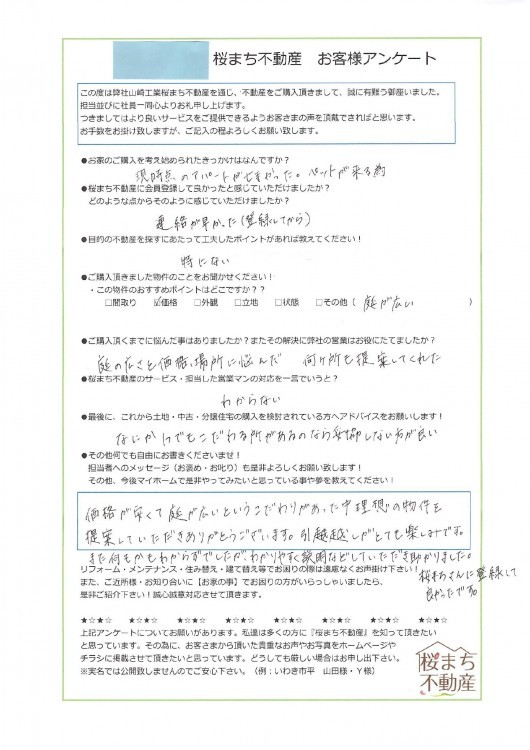 桜まち不動産　お客様アンケート
この度は弊社山崎工業桜まち不動産を通じ、不動産をご購入頂きまして、誠に有難う御座いました。
担当並びに社員一同心よりお礼申し上げます。
つきましてはより良いサービスをご提供できるようお客さまの声を頂戴できればと思います。
お手数をお掛け致しますが、ご記入の程よろしくお願い致します。
●お家のご購入を考え始められたきっかけはなんですか？
現時点のアパートがせまかった。ペットが来る為
●桜まち不動産に会員登録して良かったと感じていただけましたか？
どのような点からそのように感じていただけましたか？
連絡が早かった(登録してから)
●目的の不動産を探すにあたって工夫したポイントがあれば教えてください！
特にない
●ご購入頂きました物件のことをお聞かせください！
・この物件のおすすめポイントはどこですか？？
□間取り　☑価格　□外観　□立地　□状態　□その他（ 庭が広い ）
●ご購入頂くまでに悩んだ事はありましたか？またその解決に弊社の営業はお役にたてましたか？
庭の広さと価格、場所に悩んだ　何ヶ所も提案してくれた
●桜まち不動産のサービス・担当した営業マンの対応を一言でいうと？
わからない
●最後に、これから土地・中古・分譲住宅の購入を検討されている方へアドバイスをお願いします！
なにか1つでもこだわる所があるのなら妥協しない方が良い
●その他何でも自由にお書きくださいませ！
担当者へのメッセージ（お褒め・お叱り）も是非よろしくお願い致します！
その他、今後マイホームで是非やってみたいと思っている事や夢を教えてください！
価格が安くて庭が広いというこだわりがあった中理想の物件を
提案していただきありがとうございます。引越越しがとても楽しみです。
また何もかもわからずでしたが、わかりやすく説明などしていただき助かりました。
桜まちさんに登録して
良かったです。
リフォーム・メンテナンス・住み替え・建て替え等でお困りの際は遠慮なくお声掛け下さい！
また、ご近所様・お知り合いに【お家の事】でお困りの方がいらっしゃいましたら、
是非ご紹介下さい！誠心誠意対応させて頂きます！
★☆★☆　★☆★☆　★☆★☆　★☆★☆　★☆★☆　★☆★☆　★☆★☆　★☆★☆
上記アンケートについてお願いがあります。私達は多くの方に『桜まち不動産』を知って頂きたい
と思っています。その為に、お客さまから頂いた貴重なお声やお写真をホームページや
チラシに掲載させて頂きたいと思っています。どうしても厳しい場合はお申し出下さい。
※実名では公開致しませんのでご安心下さい。（例：いわき市平　山田様・Y様）
桜まち
不動産